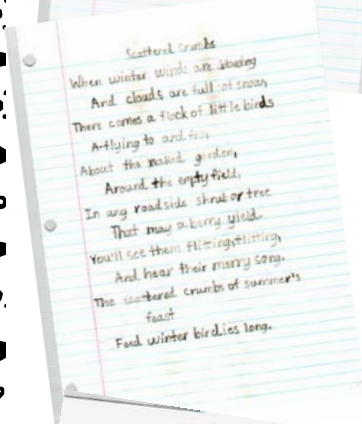 Scattered Crumbs
When winter winds are blowing
And clouds are full of snow,
There comes a flock of little birds
A-flying to and fro,
About the naked garden,
Around the empty field,
In any roadside shrub or tree
That may a berry yield.
You'll see them flitting, flitting,
And hear their merry song.
The scattered crumbs of summer's
feast
Feed winter birdies long.